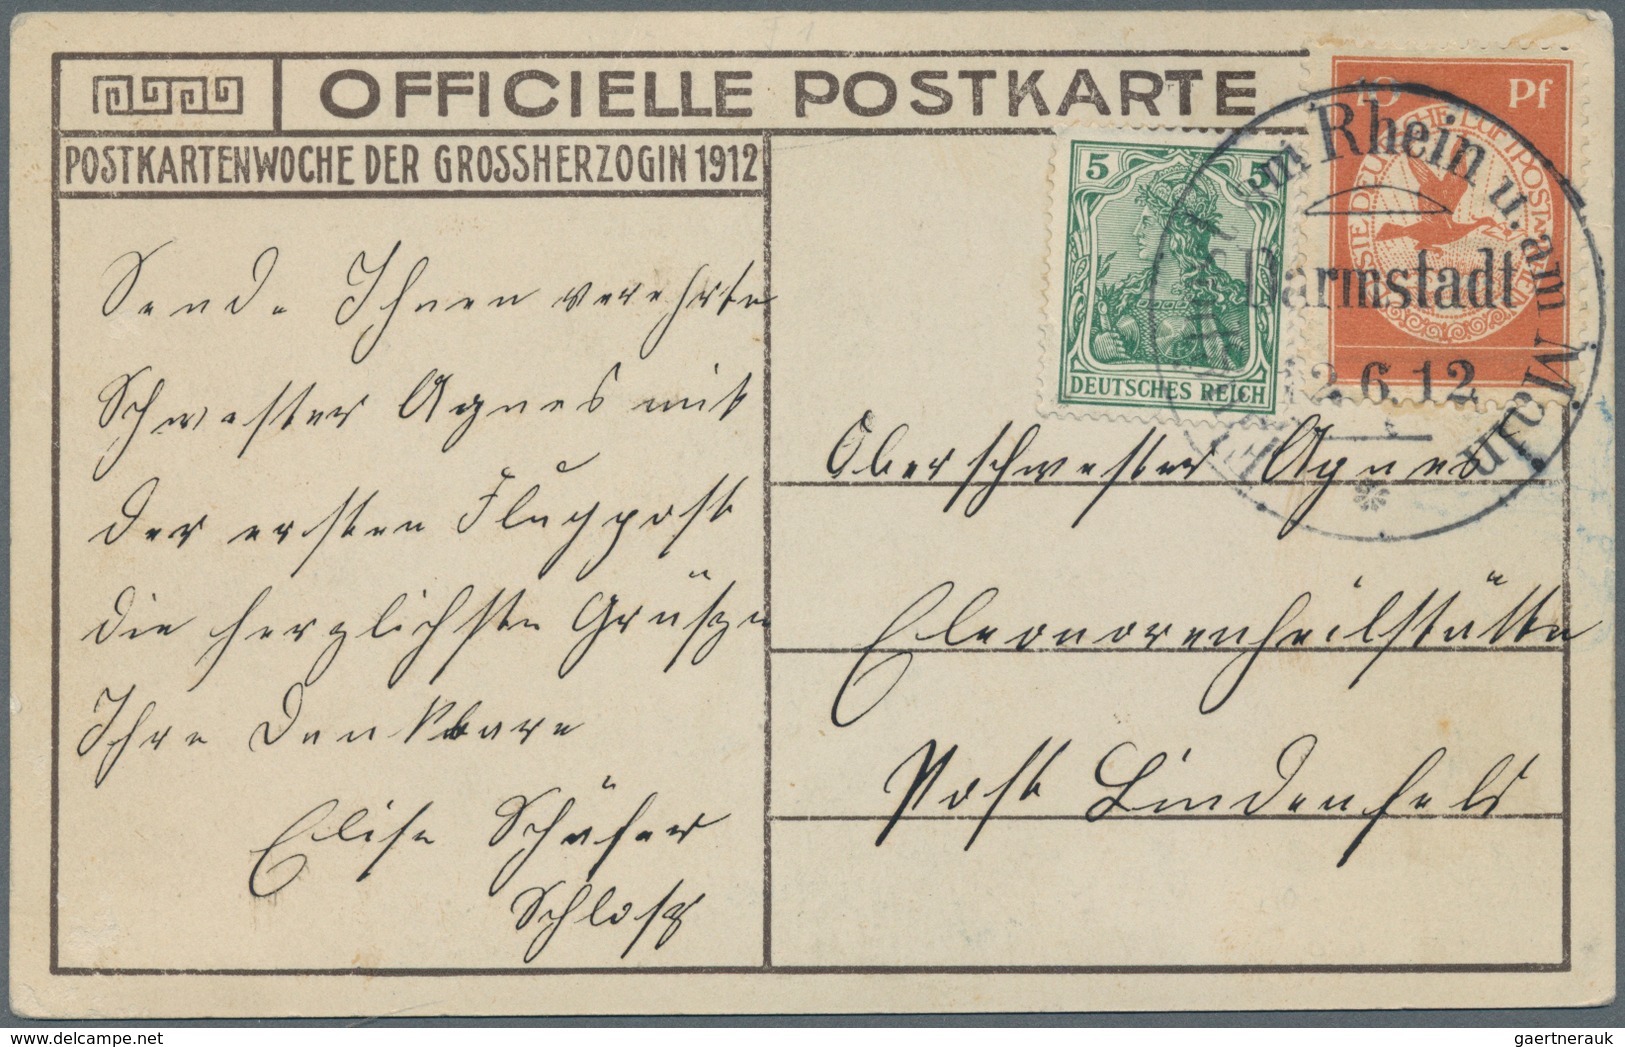 OFFICIELLE POSTKARTE
POSTKARTENWOCHE DER GROSSHERZOGIN 1912
Sende Ihnen verehrte
Schwester Agnes mit
der ersten Flugpost
die herzlichste Grüße
Ihre Dankbare
Elise Schäfer
Schloß
5 5
DEUTSCHES REICH
10 Pf
am Rhein u. am Main
Darmstadt
12.6.12
Oberschwester Agnes
Eleonorenheilstätte
Post Lindenfels
gaertnerauk